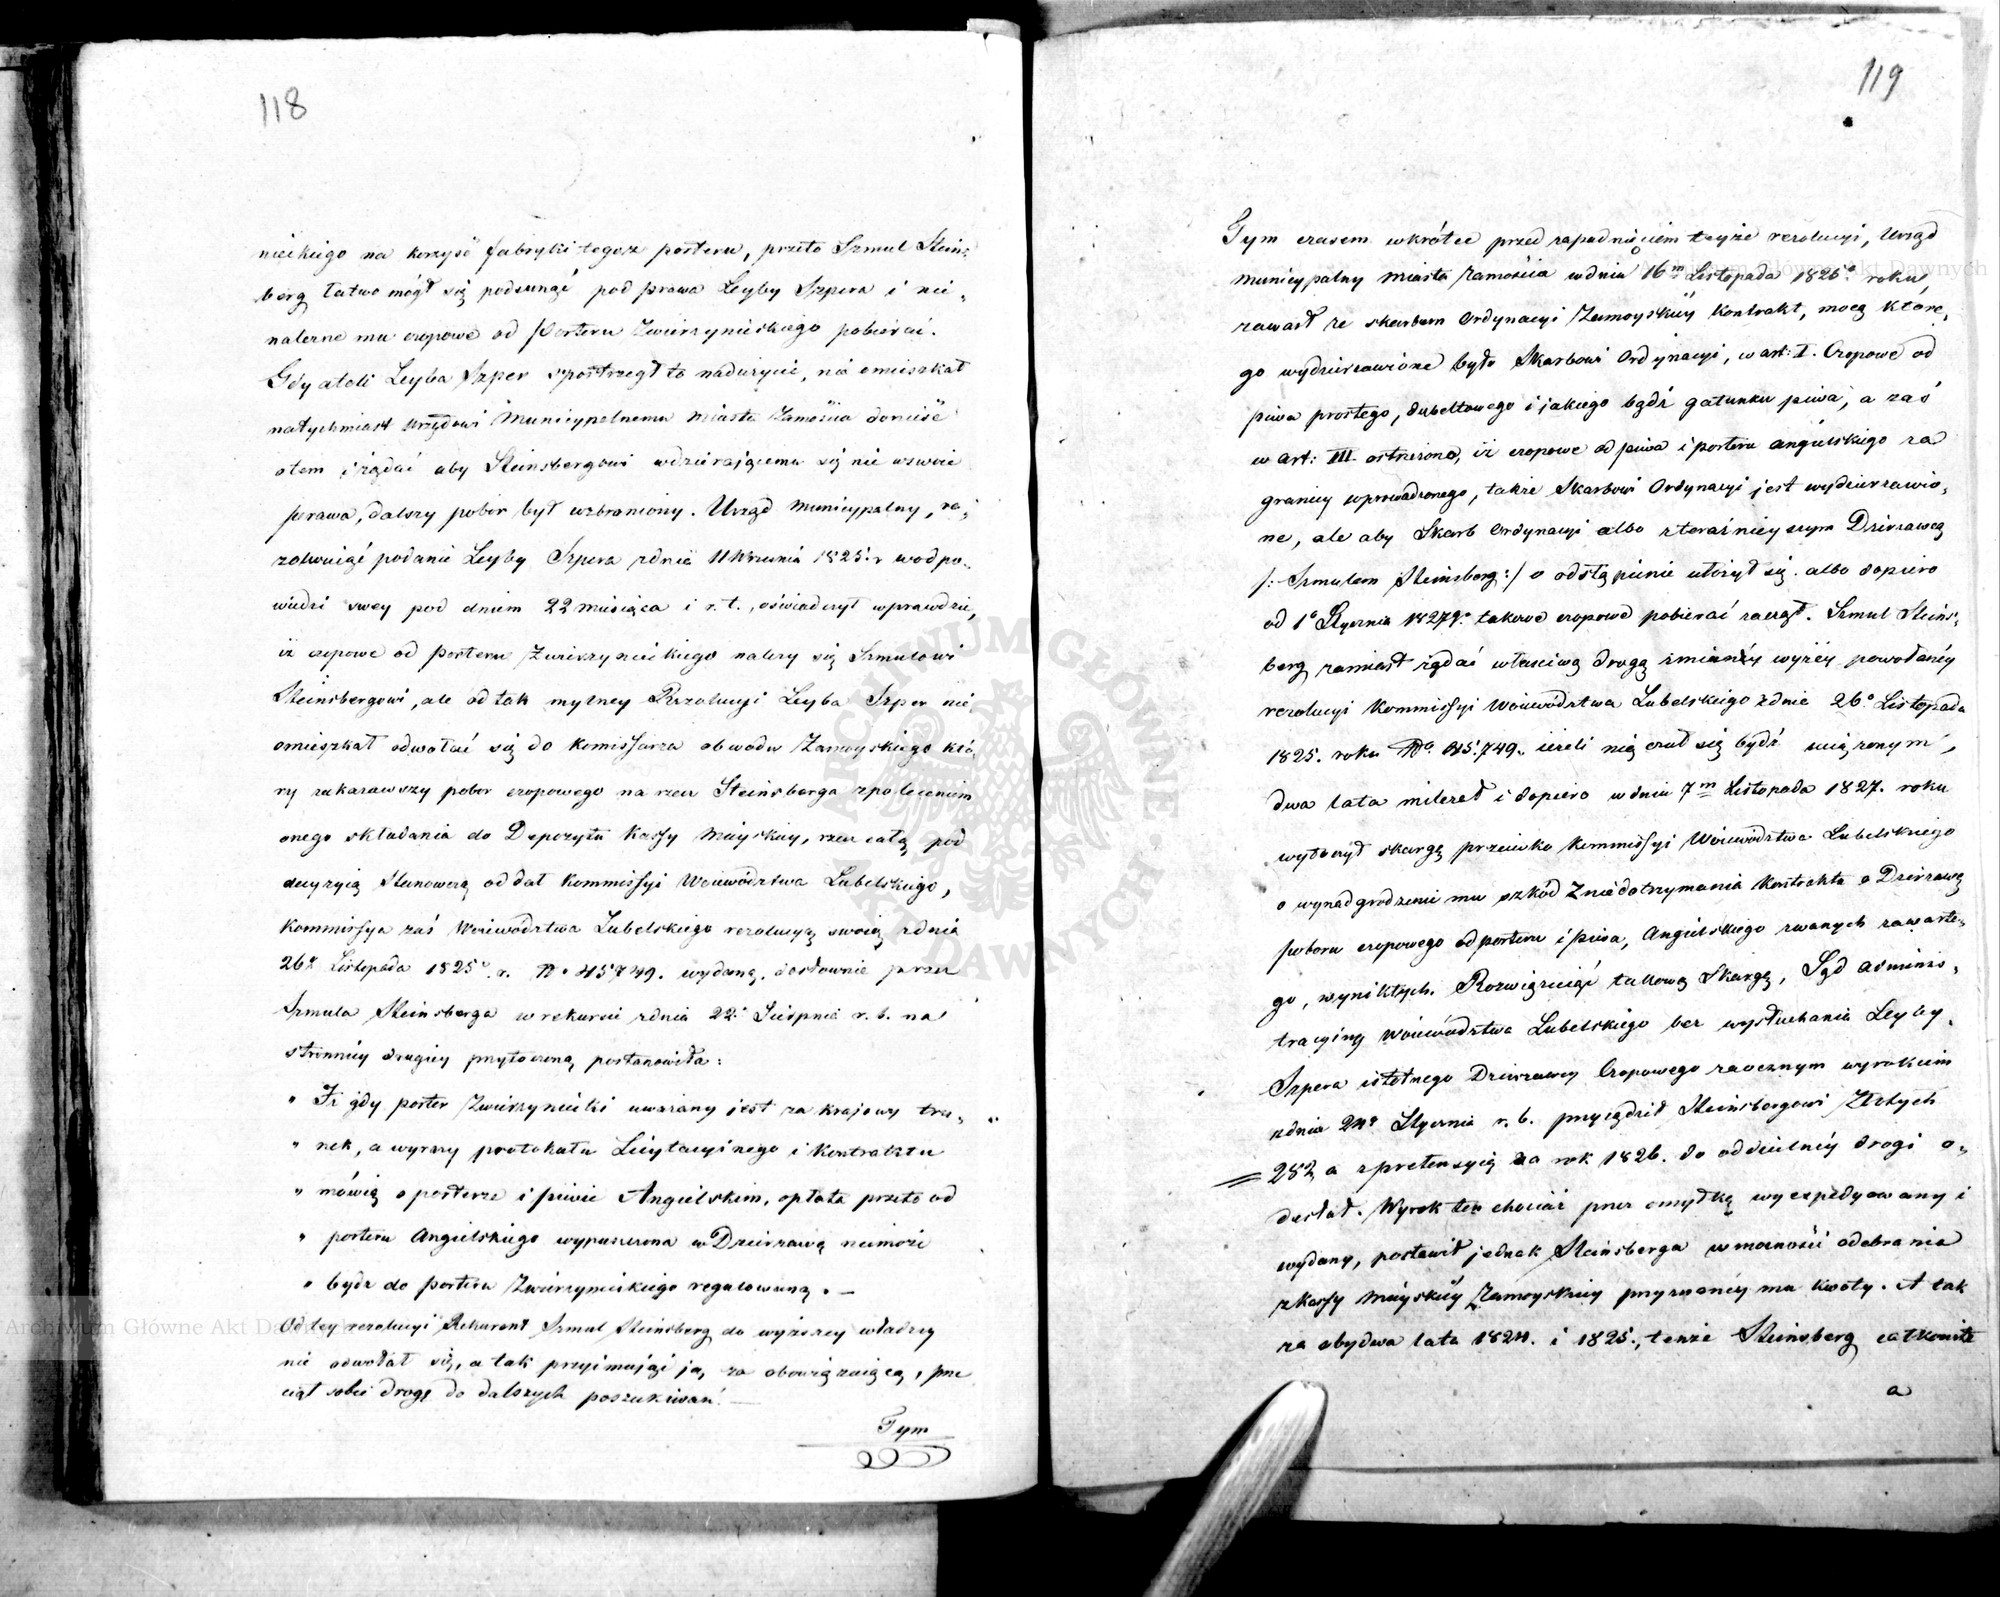 118
nieckiego na korzyść fabryki tegoż porteru, przeto Szmul Steins-
berg łatwo mógł się podsunąć pod prawa Leyby Szpera i nie-
należne mu czopowe od Porteru Zwierzynieckiego pobierać.
Gdy atoli Leyba Szper spostrzegł to nadużycie, nie omieszkał
natychmiast Urzędowi Municypalnemu Miasta Zamościa donieść
o tem i żądać aby Steinsbergowi wdzierającemu się nie w swoie
prawa, dalszy pobór był wzbroniony. Urząd Municypalny, ro-
zolwuiąc podanie Leyby Szpera zdnia 11 Kwietnia 1825. r wodpo-
wiedzi swey pod dniem 22 miesiąca i r. t., oświadczył wprawdzie,
iż czopowe od Porteru Zwierzynieckiego należy się Szmulowi
Steinsbergowi, ale od tak mylney Rezolucyi Leyba Szper nie
omieszkał odwołać się do Komissarza obwodu Zamoyskiego któ-
ry zakazawszy pobor czopowego na rzecz Steinsberga zpoleceniem
onego składania do Depozytu Kassy Mieyskiey, rzecz całą pod
decyzyią Stanowczą oddał Kommissyi Woiewództwa Lubelskiego,
Kommissya zaś Woiewództwa Lubelskiego rezolucyą swoią zdnia
26º Listopada 1825º r. Nº 45749. wydaną, dosłownie przez
Szmula Steinsberga w rekursie zdnia 22º Sierpnia r. b. na
stronnicy drugiey przytoczoną postanowiła:
" Iż gdy porter Zwierzyniecki uważany jest za krajowy tru- "
" nek, a wyrazy protokułu Licytacyinego i Kontraktu
" mówią o porterze i piwie Angielskim, opłata przeto od
" porteru Angielskiego wypuszczona w Dzierzawę niemoże
" bydz do porteru Zwierzynieckiego regulowaną. —
Od tey rezolucyi Rekurent Szmul Steinsberg do wyższey władzy
nie odwołał się, a tak przyimuiąc ją, za obowięzuiącą, prze
ciął sobie drogę do dalszych poszukiwań. —
Tym
119
Tym czasem wkrótce przed zapadnięciem teyże rezolucyi, Urząd
Municypalny Miasta Zamościa w dniu 16m Listopada 1825º roku,
zawarł ze skarbem Ordynacyi Zamoyskiey Kontrakt, mocą które-
go wydzierzawione było Skarbowi Ordynacyi, w art: I. Czopowe od
piwa prostego, dubeltowego i jakiego bądź gatunku piwa, a zaś
w art: III. ostrzeżono, iż czopowe od piwa i porteru angielskiego za
granicy wprowadzonego, także Skarbowi Ordynacyi jest wydzierzawio-
ne, ale aby Skarb Ordynacyi albo zteraźnieyszym Dzierzawcą
/: Szmulem Steinsberg :/ o odstąpienie ułożył się albo dopiero
od 1º Stycznia 1827º takowe czopowe pobierać zaczął. Szmul Steins-
berg zamiast żądać właściwą drogą zmiany wyżey powołaney
rezolucyi Kommissyi Woiewództwa Lubelskiego zdnia 26º Listopada
1825. roku Nº 45.749. ieżeli nią czuł się bydź uciążonym,
dwa lata milczał i dopiero w dniu 7m Listopada 1827. roku
wytoczył skargę przeciwko Kommissyi Woiewództwa Lubelskiego
o wynadgrodzenie mu szkód z niedotrzymania Kontraktu o Dzierzawę
poboru czopowego od porteru i piwa, Angielskiego zwanych zawarte-
go, wynikłych. Rozwiązuiąc takową Skargę, Sąd adminis-
tracyiny Woiewództwa Lubelskiego bez wysłuchania Leyby
Szpera istotnego Dzierzawcy Czopowego zaocznym wyrokiem
zdnia 24º Stycznia r. b. przysądził Steinsbergowi Złotych
252, a zpretensyią za rok 1826. do oddzielney drogi o-
desłał. Wyrok ten chociaż przez omyłkę wyexpedyowany i
wydany, postawił jednak Steinsberga w możności odebrania
z kassy Mieyskiey Zamoyskiey przyznaney mu kwoty. A tak
za obydwa lata 1824. i 1825., tenże Steinsberg całkowite
a